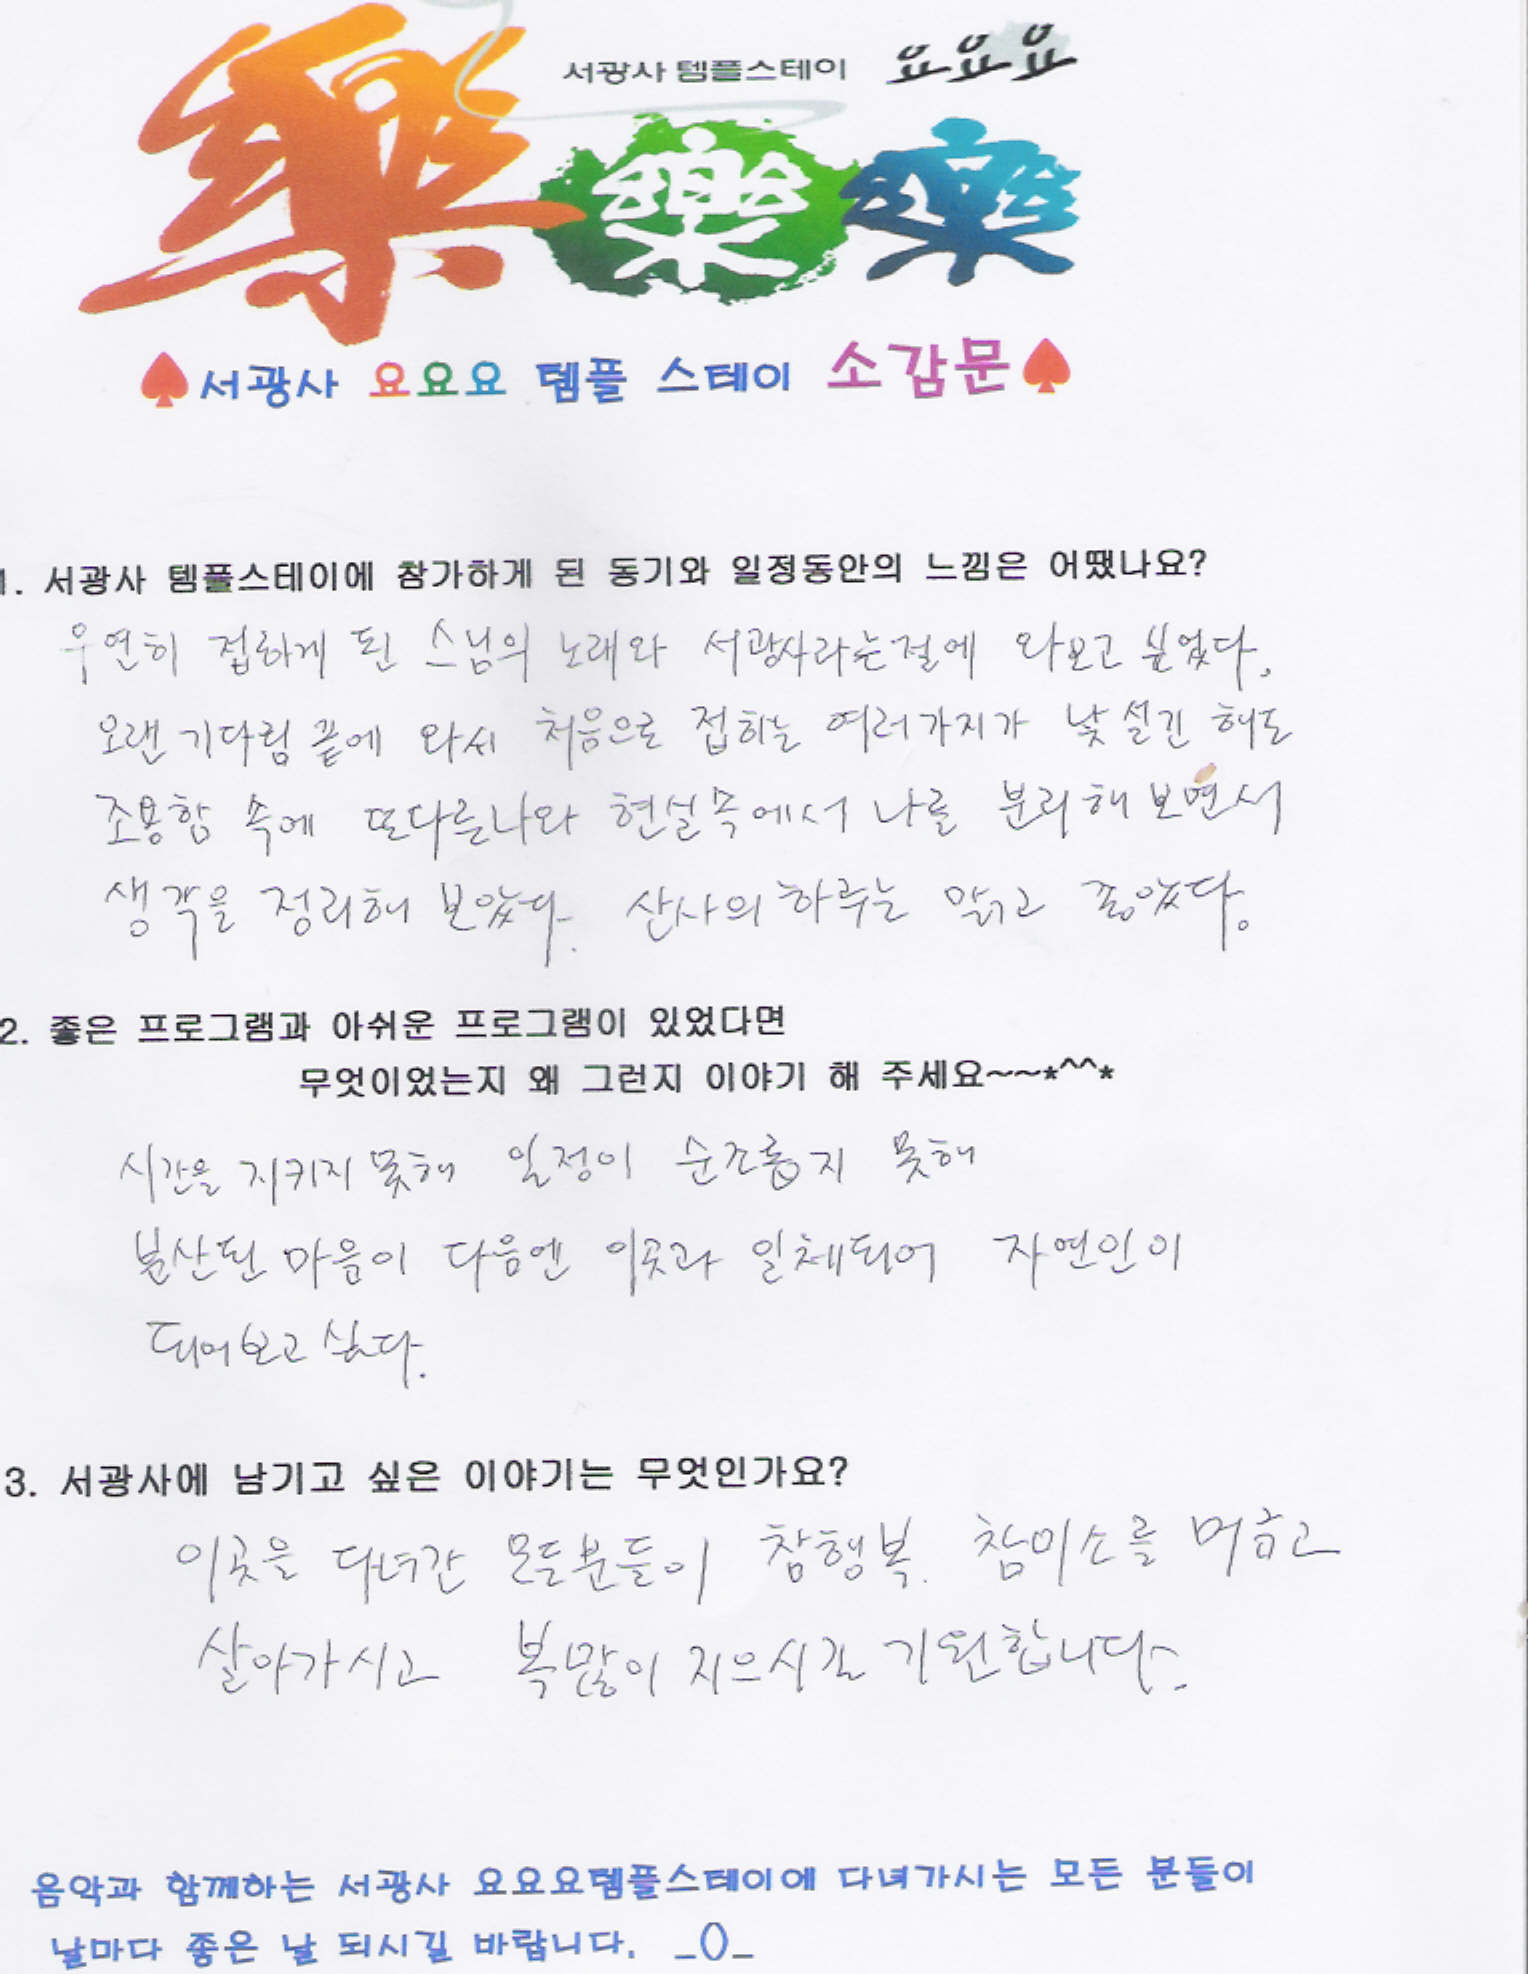 서광사 템플스테이 요요요
樂 樂 樂
♠서광사 요요요 템플 스테이 소감문♠
1. 서광사 템플스테이에 참가하게 된 동기와 일정동안의 느낌은 어땠나요?
우연히 접하게 된 스님의 노래와 서광사라는절에 와보고 싶었다.
오랜 기다림 끝에 와서 처음으로 접하는 여러가지가 낯설긴 해도
조용함 속에 또다른나와 현실속에서 나를 분리해 보면서
생각을 정리해 보았다. 산사의 하루는 맑고 좋았다.
2. 좋은 프로그램과 아쉬운 프로그램이 있었다면
무엇이었는지 왜 그런지 이야기 해 주세요~~*^^*
시간을 지키지 못해 일정이 순조롭지 못해
분산된 마음이 다음엔 이곳과 일체되어 자연인이
되어보고 싶다.
3. 서광사에 남기고 싶은 이야기는 무엇인가요?
이곳을 다녀간 모든분들이 참행복. 참미소를 머금고
살아가시고 복많이 지으시길 기원합니다.
음악과 함께하는 서광사 요요요템플스테이에 다녀가시는 모든 분들이
날마다 좋은 날 되시길 바랍니다. _()_